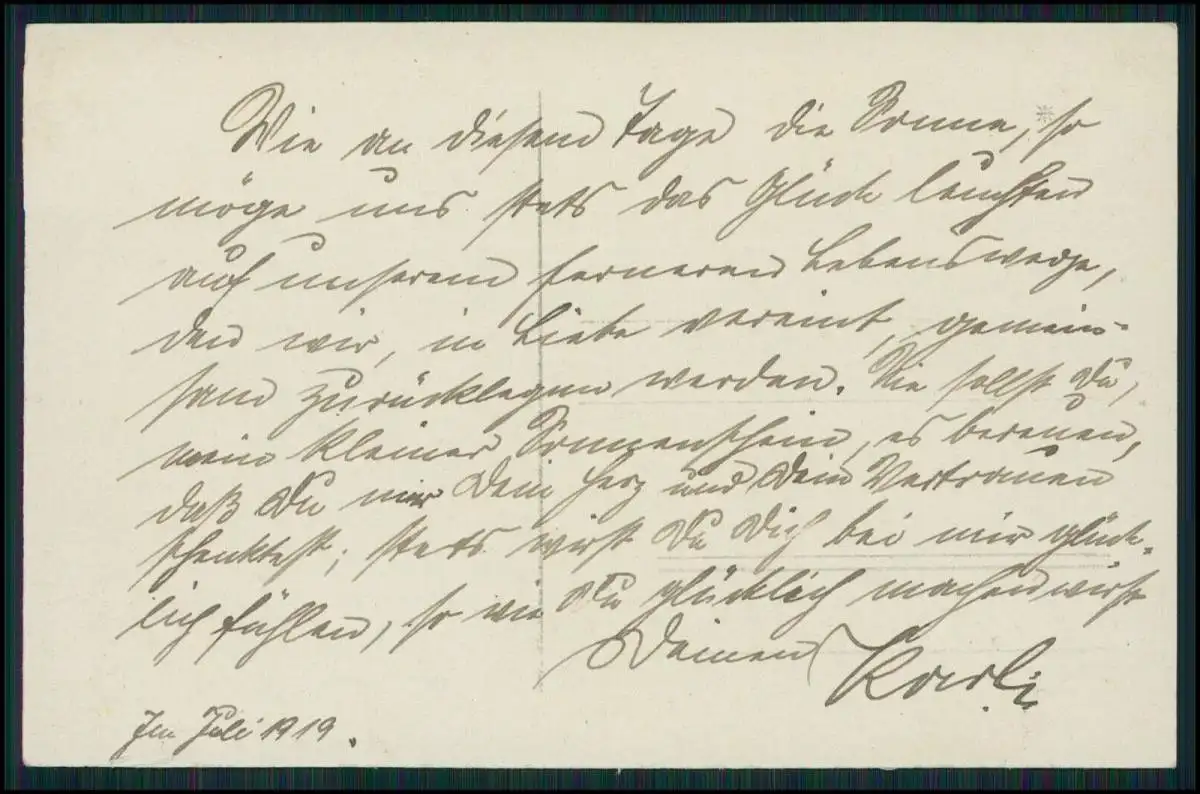 Wie an diesem Tage die Sonne, so
möge uns stets das Glück leuchten
auf unserem ferneren Lebenswege,
den wir, in Liebe vereint, gemein-
sam zurücklegen werden. Nie sollst Du,
mein kleiner Sonnenschein, es bereuen,
daß Du mir Dein Herz und Dein Vertrauen
schenktest; stets wirst Du Dich bei mir glück-
lich fühlen, so wie Du glücklich machen wirst
Deinen Karli
Im Juli 1919.